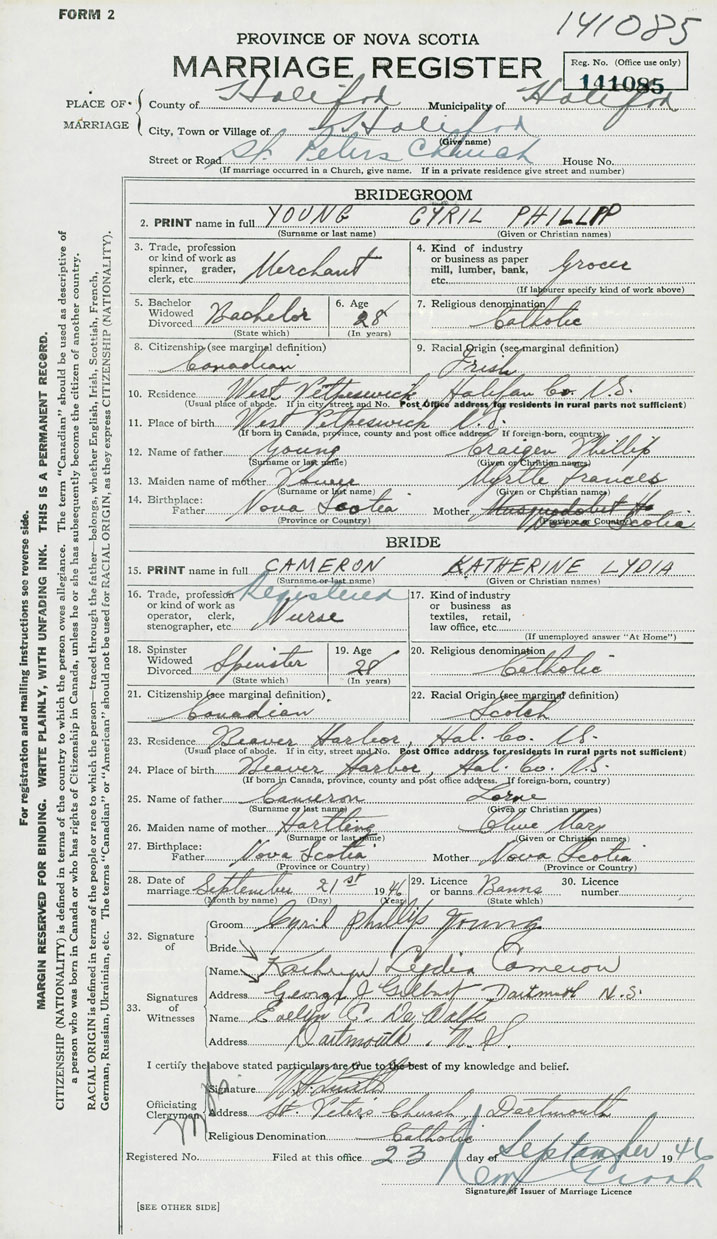 FORM 2
141085
PROVINCE OF NOVA SCOTIA
MARRIAGE REGISTER
Reg. No. (Office use only)
141085
PLACE OF MARRIAGE
County of Halifax Municipality of Halifax
City, Town or Village of Halifax
(Give name)
Street or Road St. Peters Church House No.
(If marriage occurred in a Church, give name. If in a private residence give street and number)
BRIDEGROOM
2. PRINT name in full YOUNG CYRIL PHILLIP
(Surname or last name) (Given or Christian names)
3. Trade, profession or kind of work as spinner, grader, clerk, etc. Merchant
4. Kind of industry or business as paper mill, lumber, bank, etc. Grocer
(If labourer specify kind of work above)
5. Bachelor Widowed Divorced Bachelor
(State which)
6. Age 28
(In years)
7. Religious denomination Catholic
8. Citizenship (see marginal definition) Canadian
9. Racial Origin (see marginal definition) Irish
10. Residence West Petpeswick Halifax Co. N.S.
(Usual place of abode. If in city, street and No. Post Office address for residents in rural parts not sufficient)
11. Place of birth West Petpeswick N.S.
(If born in Canada, province, county and post office address. If foreign-born, country)
12. Name of father Young Craigen Phillip
(Surname or last name) (Given or Christian names)
13. Maiden name of mother Myrtle Frances
(Surname or last name) (Given or Christian names)
14. Birthplace: Father Nova Scotia Mother Musquodoboit Ha Nova Scotia
(Province or Country) (Province or Country)
BRIDE
15. PRINT name in full CAMERON KATHERINE LYDIA
(Surname or last name) (Given or Christian names)
16. Trade, profession or kind of work as operator, clerk, stenographer, etc. Registered Nurse
17. Kind of industry or business as textiles, retail, law office, etc.
(If unemployed answer "At Home")
18. Spinster Widowed Divorced Spinster
(State which)
19. Age 28
(In years)
20. Religious denomination Catholic
21. Citizenship (see marginal definition) Canadian
22. Racial Origin (see marginal definition) Scotch
23. Residence Beaver Harbor, Hal. Co. N.S.
(Usual place of abode. If in city, street and No. Post Office address for residents in rural parts not sufficient)
24. Place of birth Beaver Harbor, Hal. Co. N.S.
(If born in Canada, province, county and post office address. If foreign-born, country)
25. Name of father Cameron Lorne
(Surname or last name) (Given or Christian names)
26. Maiden name of mother Hartling Olive Mary
(Surname or last name) (Given or Christian names)
27. Birthplace: Father Nova Scotia Mother Nova Scotia
(Province or Country) (Province or Country)
28. Date of marriage September 21st 1946
(Month by name) (Day) (Year)
29. Licence or banns Banns
(State which)
30. Licence number
32. Signature of
Groom Cyril Phillip Young
Bride
33. Signatures of Witnesses
Name Kathryn Lydia Cameron
Address George J Gilbert Dartmouth N.S.
Name Evelyn C. De Wolfe
Address Dartmouth. N.S.
I certify the above stated particulars are true to the best of my knowledge and belief.
Officiating Clergyman
Signature
Address St. Peters Church, Dartmouth
Religious Denomination Catholic
Registered No. Filed at this office 23 day of September 1946
Signature of Issuer of Marriage Licence
[SEE OTHER SIDE]
For registration and mailing instructions see reverse side.
MARGIN RESERVED FOR BINDING. WRITE PLAINLY, WITH UNFADING INK. THIS IS A PERMANENT RECORD.
CITIZENSHIP (NATIONALITY) is defined in terms of the country to which the person owes allegiance. The term "Canadian" should be used as descriptive of
a person who was born in Canada or who has rights of Citizenship in Canada, unless he or she has subsequently become the citizen of another country.
RACIAL ORIGIN is defined in terms of the people or race to which the person—traced through the father—belongs, whether English, Irish, Scottish, French,
German, Russian, Ukrainian, etc. The terms "Canadian" or "American" should not be used for RACIAL ORIGIN, as they express CITIZENSHIP (NATIONALITY).